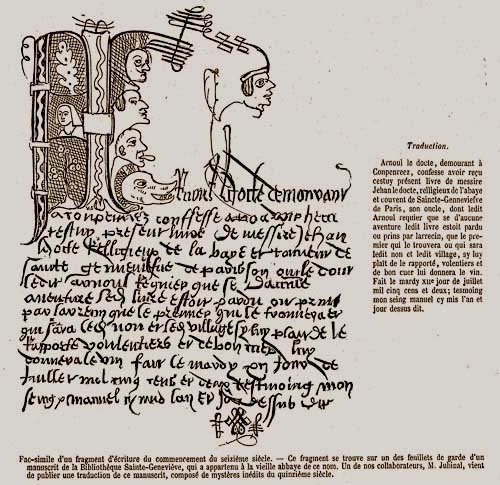 demourant
conffesse
cestuy present livre de messire Jehan
docte de labaye et couvent de
saincte
ledit arnoul que se daucune
aventure led livre estoit pardu ou prins
par larrecin que le premier qui le trouvera ou
qui sara led nom et led village sy luy plait de le
rapporte voulentiers et de bon cuer luy
donnera le vin fait le mardy jour de
Juillet mil cinq cens et deux tesmoing mon
seing manuel cy mis lan et jour dessus dit
Traduction.
Arnoul le docte, demourant à
Conpencrez, confesse avoir reçu
cestuy présent livre de messire
Jehan le docte, relligieus de l'abaye
et couvent de Saincte-Genneviefve
de Paris, son oncle, dont ledit
Arnoul requier que se d'aucune
aventure ledit livre estoit pardu
ou prins par larrecin, que le pre-
mier qui le trouvera ou qui sara
ledit nom et ledit village, sy luy
plaît de le rapporté, volentiers et
de bon cuer lui donnera le vin.
Fait le mardy XIIe jour de juillet
mil cinq cens et deux; tesmoing
mon seing manuel cy mis l'an et
jour dessus dit.
Fac-simile d'un fragment d'écriture du commencement du seizième siècle. — Ce fragment se trouve sur un des feuillets de garde d'un
manuscrit de la Bibliothèque Sainte-Geneviève, qui a appartenu à la vieille abbaye de ce nom. Un de nos collaborateurs, M. Jubinal, vient
de publier une traduction de ce manuscrit, composé de mystères inédits du quinzième siècle.